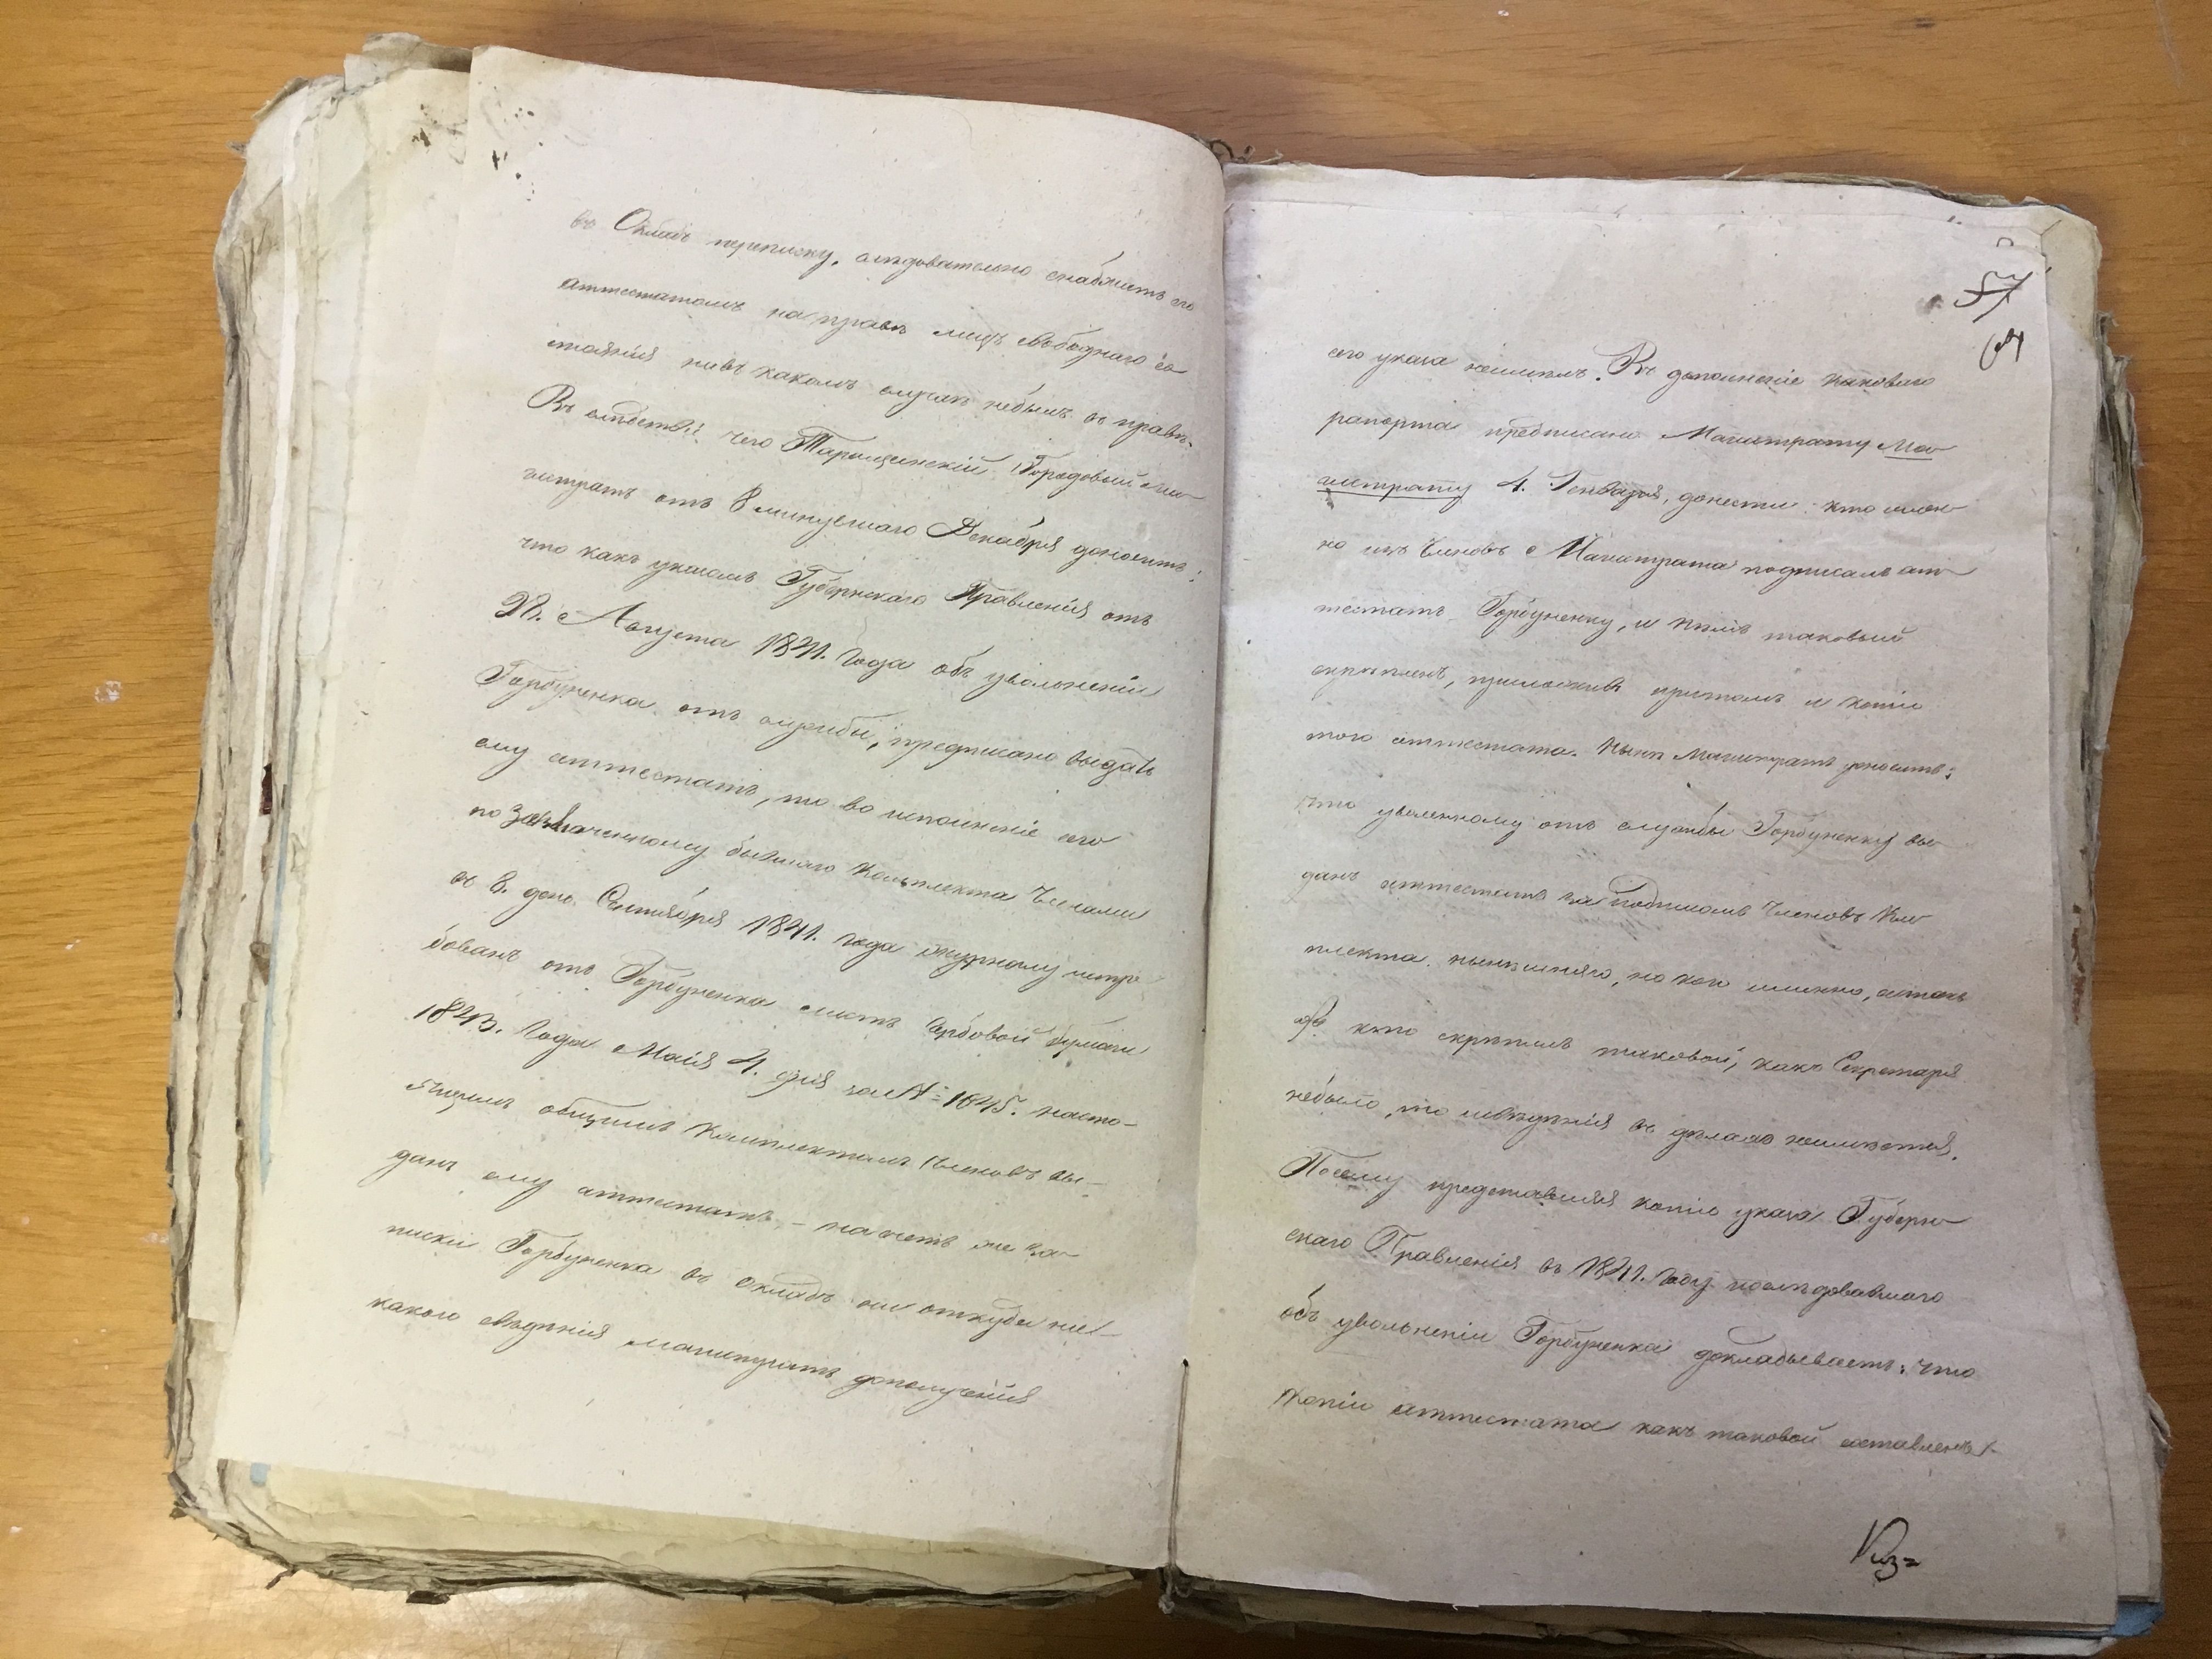 въ Окладъ переписку, следовательно снабжить его
аттестатомъ на праве лицъ свободнаго со
стоянія нивъ какомъ случае небылъ въ праве.
Въ следствіе чего Таращанскій Городовый Ма
гистратъ отъ 8 минувшаго Декабря доноситъ:
что какъ указомъ Губернскаго Правленія отъ
Августа 1841. Года объ увольненіи
Горбуненка отъ службы, предписано выдать
ему аттестатъ, то во исполненіе его
по бывшаго Комплекта Членами
въ 8. день Сентября 1841. года журналу истре
бованъ отъ Горбуненка листъ Гербовой бумаги
1843. Года Маія 4. дня за № 1845. насто-
ящимъ общимъ Комплектомъ Членовъ вы-
данъ ему аттестатъ, – насчетъ же за-
писки Горбуненка въ окладъ ни откуда ни-
какого сведенія магистратъ дополученія
57
64
сего указа неимелъ. Въ дополненіе каковаго
рапорта предписано Магистрату Ма
гистрату 4. Генваря, донести: кто имен
но изъ Членовъ Магистрата подписалъ ат
тестатъ Горбуненку, и кемъ таковый
скрепленъ, приложивъ притомъ и копію
того аттестата. Ныне Магистратъ доноситъ:
что уволенному отъ службы Горбуненку вы
данъ аттестатъ за подписомъ Членовъ Ком
плекта нынешняго, но кем именно, а
кто скрепилъ таковой, какъ Секретаря
небыло, то сведенія въ делахъ неимеется.
Посему представляя копію указа Губерн
скаго Правленія въ 1841. Году последовавшаго
объ увольненіи Горбуненка докладываетъ: что
копіи аттестата какъ таковой составленъ